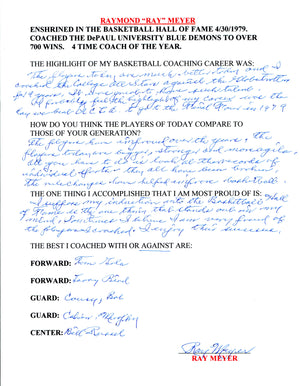 RAYMOND "RAY" MEYER
ENSHRINED IN THE BASKETBALL HALL OF FAME 4/30/1979.
COACHED THE DePAUL UNIVERSITY BLUE DEMONS TO OVER
700 WINS. 4 TIME COACH OF THE YEAR.
THE HIGHLIGHT OF MY BASKETBALL COACHING CAREER WAS:
The players today are much better today and I
coached the College All Stars against the Globetrotters
for years. It
the highlight of my career was the
the Final Four in 1979
HOW DO YOU THINK THE PLAYERS OF TODAY COMPARE TO
THOSE OF YOUR GENERATION?
The players have improved over the years. The
players are bigger, stronger and more agile.
All you have to do is look at the records of
individual efforts, they all have been broken.
have helped improve basketball
THE ONE THING I ACCOMPLISHED THAT I AM MOST PROUD OF IS:
I suppose my induction into the Basketball Hall
of Fame is the one thing that stands out in my
mind. I am very proud of
the players I coached. I enjoy their success.
THE BEST I COACHED WITH OR AGAINST ARE:
FORWARD: Tom Gola
FORWARD: Larry Bird
GUARD: Cousy, Bob
GUARD: Calvin Murphy
CENTER: Bill Russell
Ray Meyer
RAY MEYER